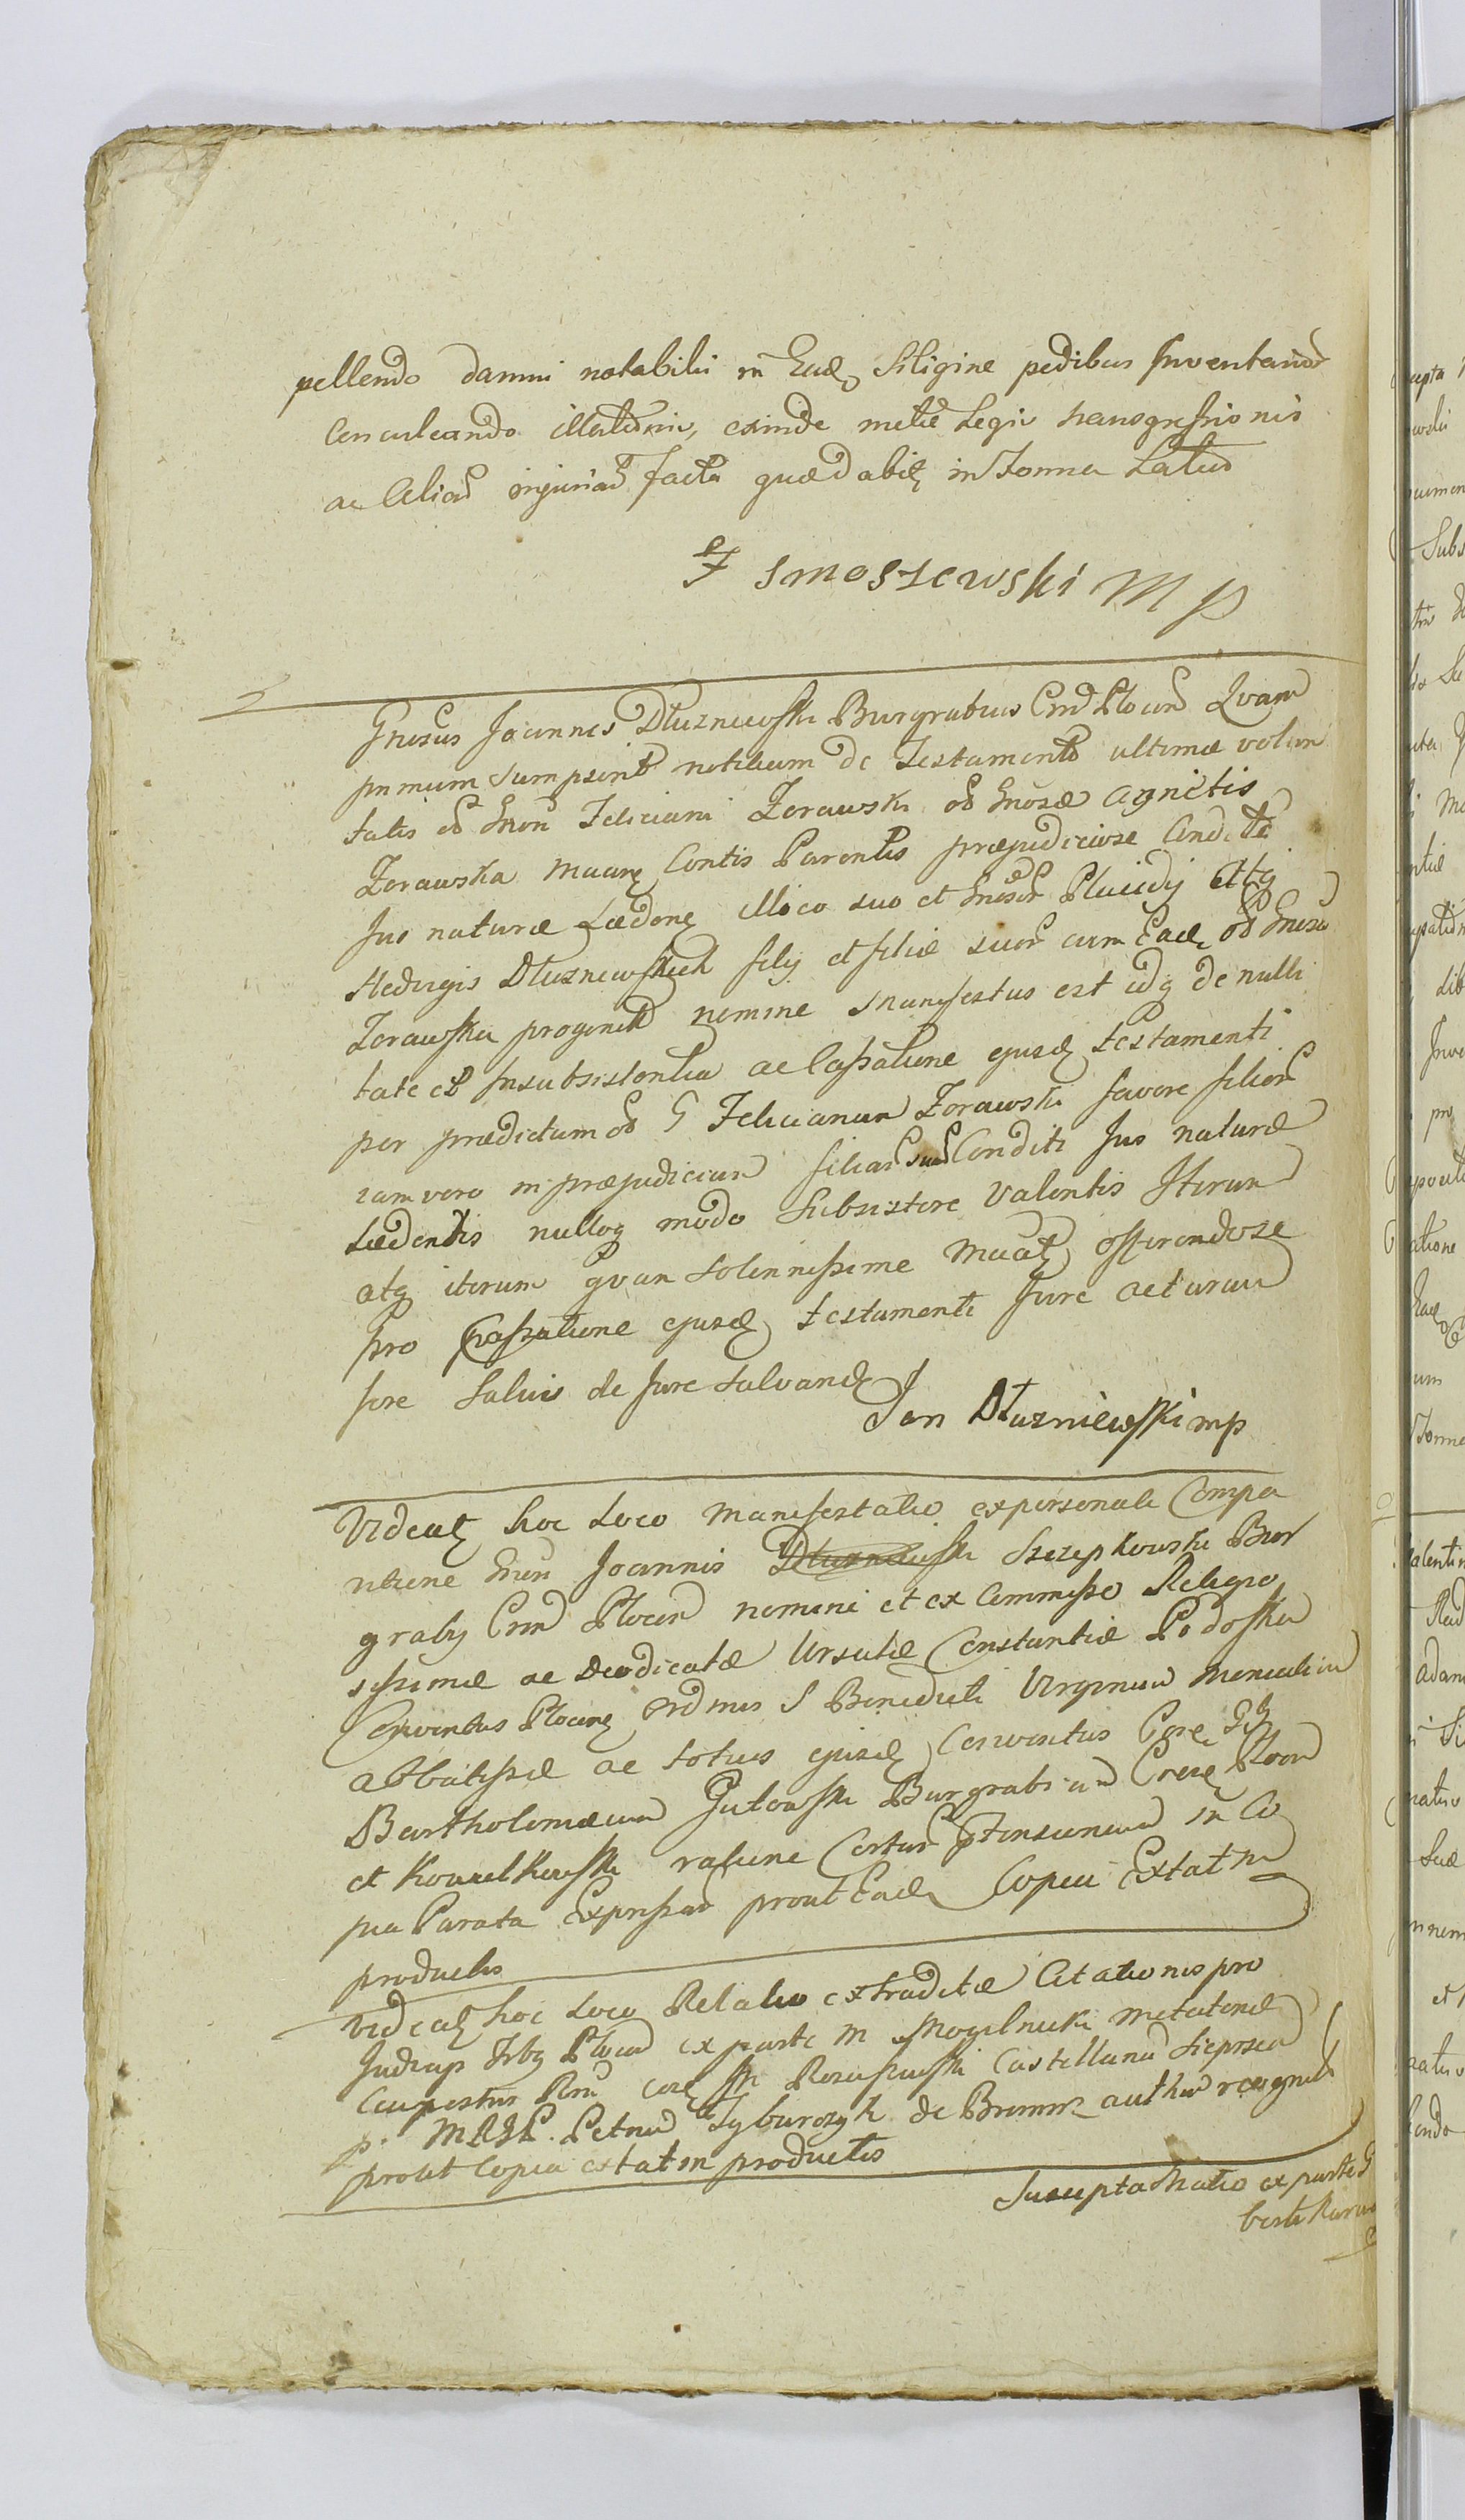 pellendo damni notabilis in Ead Siligine pedibus
Conculcando illatum, exinde metæ Legis transgressionis
ac Aliar injuriar facta quæd in Forma Latius
F Smoszewski M P
Gnosus Joannes Dłuzniewski Burgrabius Crnd Plocen Quam
primum sumpserit notitium de Testamento ultimæ volun
tatis ob Gnen Feliciani Zorawski ob Gnosæ Agnetis
Zorawska Contis Parentis præjudiciose Condite
Jus naturæ Ledene illico suo et Gnosor Placidy Attq
Hedvigis Dłuzniewskich filij et filiæ suor cum Ead ob Gnosa
Zorawska progenit nomine manifestus est idq de nulli
tate et Insubsistentia ac Cassatione ejusd testamenti
per prædictum ob G Felicianum Zorawski favore filior
iam vero in præjudicium filiar suar Conditi Jus naturæ
Lædentis nulloq modo Subsistere Valentis Iterum
atq iterum quam Solennissime offerendo se
Pro Cassatione ejusd testamenti Jure acturum
fore Salvis de Jure Salvand
Jan Dłuzniewski mp
Videat hoc Loco Manifestatio ex personali Compa
ritione Gnen Joannis Dłuzniewski Szczepkowski Bur
graby Crnd Plocen nomine et ex Commisso Religio
sissimæ ac Deo dicatæ Ursulæ Constantiæ Podoska
Conventus Plocen Ordinis S Benedicti Virginum Monialium
Abbatissæ ac totius ejusd Conventus
Bartholomæum Gutowski Burgrabium Plocen
et Kowalkowski ratione Certar ptensionum in Co
pia Parata Expressar prout Ead Copia Extat in
productis
Videat hoc Loco Relatio extraditæ Citationis pro
Judicijs Trbq Plocen ex parte M Mogilnicki
Campestris Castellanum Sieprcen
p. Petrum Tyburczyk de author recognit
prout Copia extat in productis
Suscepta ex parte G